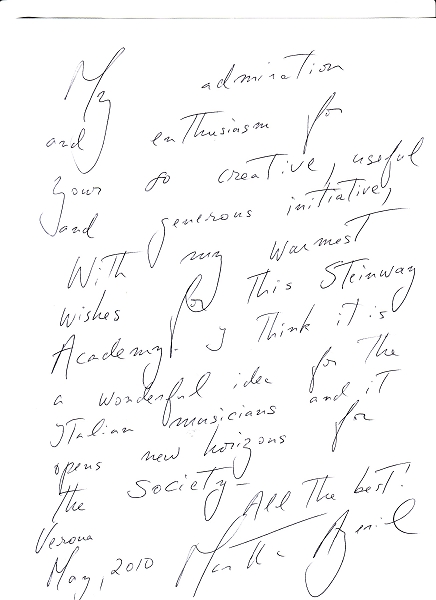 My admiration
and enthusiasm for
your so creative, useful
and generous initiative,
With my warmest
wishes for this Steinway
Academy - I think it is
a wonderful idea for the
Italian musicians and it
opens new horizons for
the Society -
All the best!
Verona
May, 2010 Martha Argerich